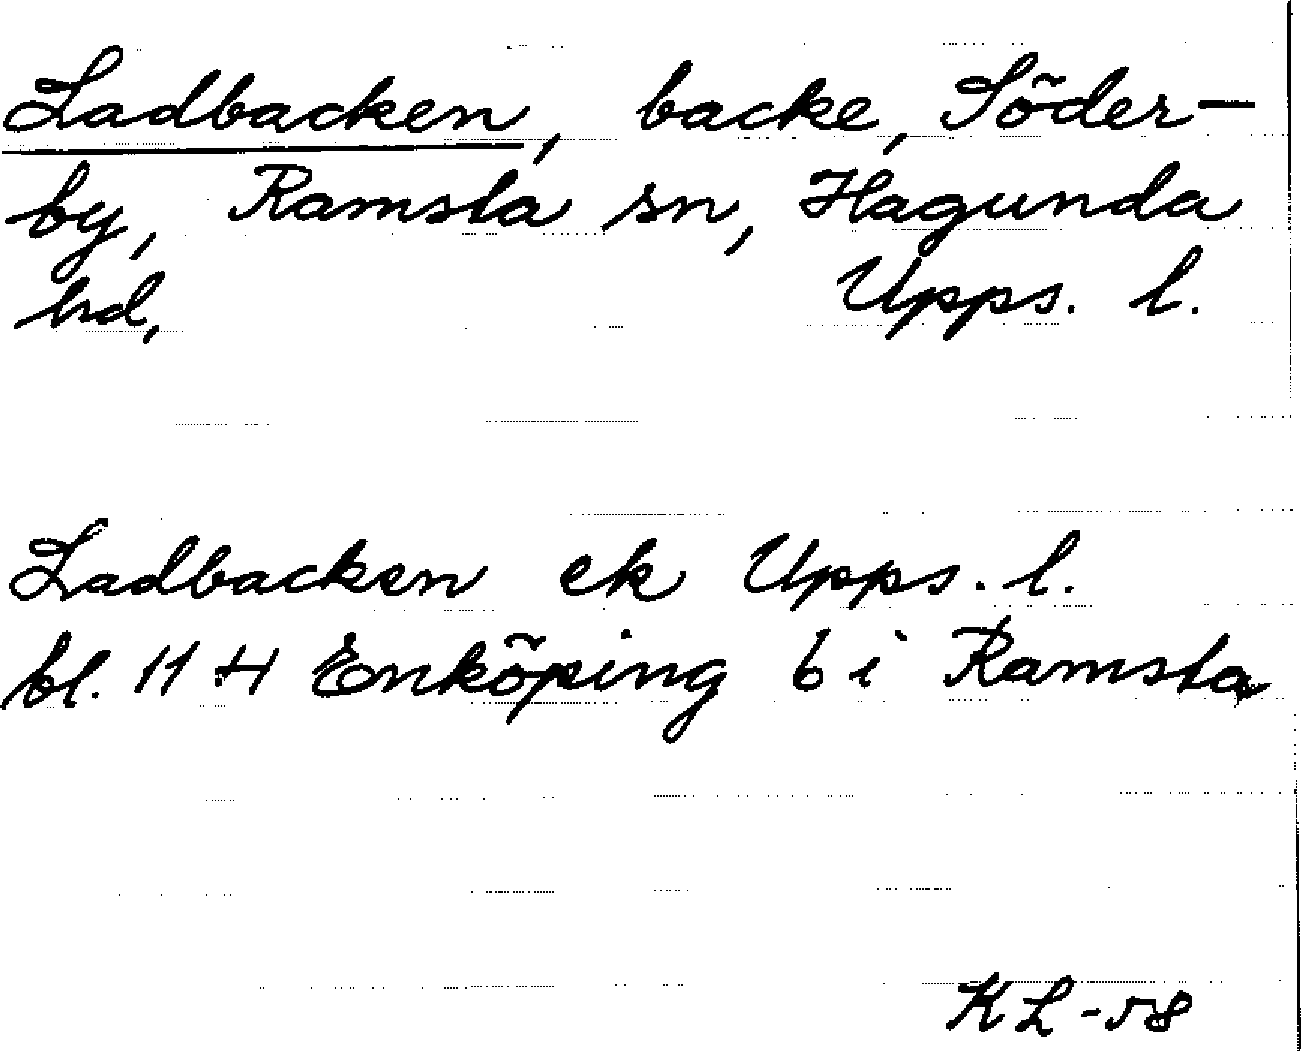 Ladbacken, backe, Söder-
by, Ramsta sn, Hagunda
hd, Upps. l.
Ladbacken ek Upps. l.
bl. 11 H Enköping 6 i Ramsta
KL-58